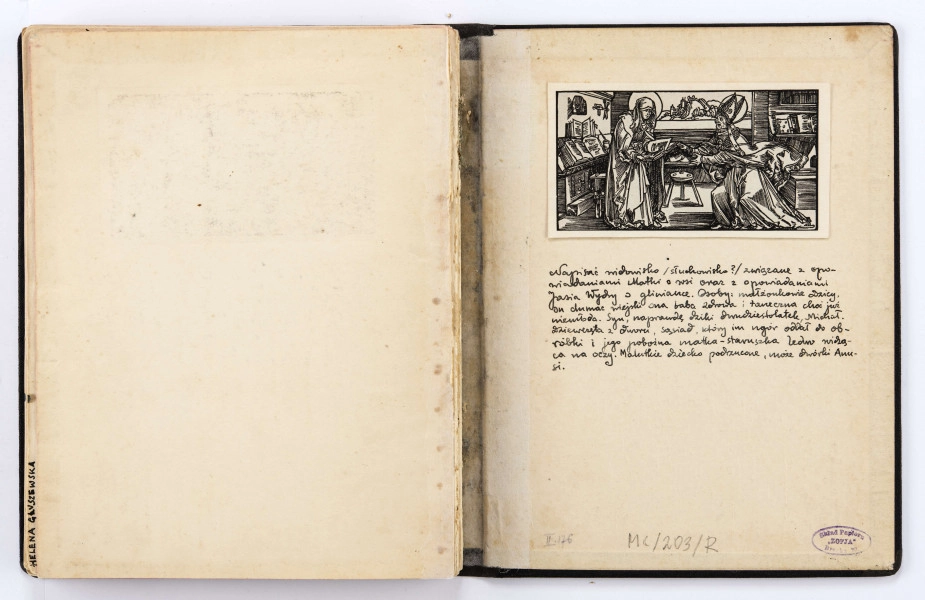 HELENA GŁUSZEWSKA
Napisać widowisko /słuchowisko?/ związane z opo-
wiadaniami Matki o wsi oraz z opowiadaniami
Jasia Wydry o gliniance. Osoby: małżonkowie dzicy,
on dumac wiejski ona baba zdrowa i taneczna choć już
niemłoda. Syn, naprawdę dziki dwudziestolatek, Michał.
Dziewczęta z dworu, sąsiad, który im ugór oddał do ob-
róbki i jego pobożna matka-staruszka ledwo widzą-
ca na oczy. Malutkie dziecko podrzucone, może dwórki Anu-
si.
II 176
MC/203/R
Skład Papieru
"ZOFJA"